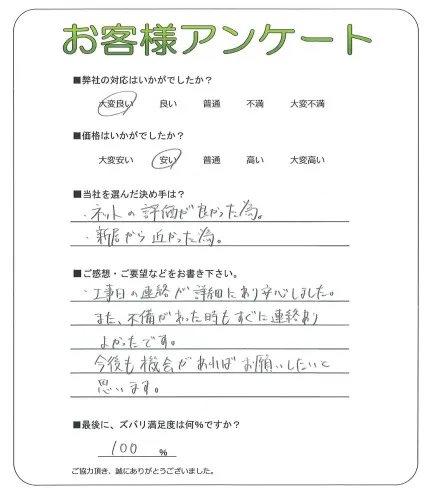 お客様アンケート
■弊社の対応はいかがでしたか？
大変良い 良い 普通 不満 大変不満
■価格はいかがでしたか？
大変安い 安い 普通 高い 大変高い
■当社を選んだ決め手は？
・ネットの評価が良かった為。
・新居から近かった為。
■ご感想・ご要望などをお書き下さい。
・工事日の連絡が詳細にあり安心しました。
また、不備があった時もすぐに連絡あり
よかったです。
今後も機会があればお願いしたいと
思います。
■最後に、ズバリ満足度は何%ですか？
100 %
ご協力頂き、誠にありがとうございました。